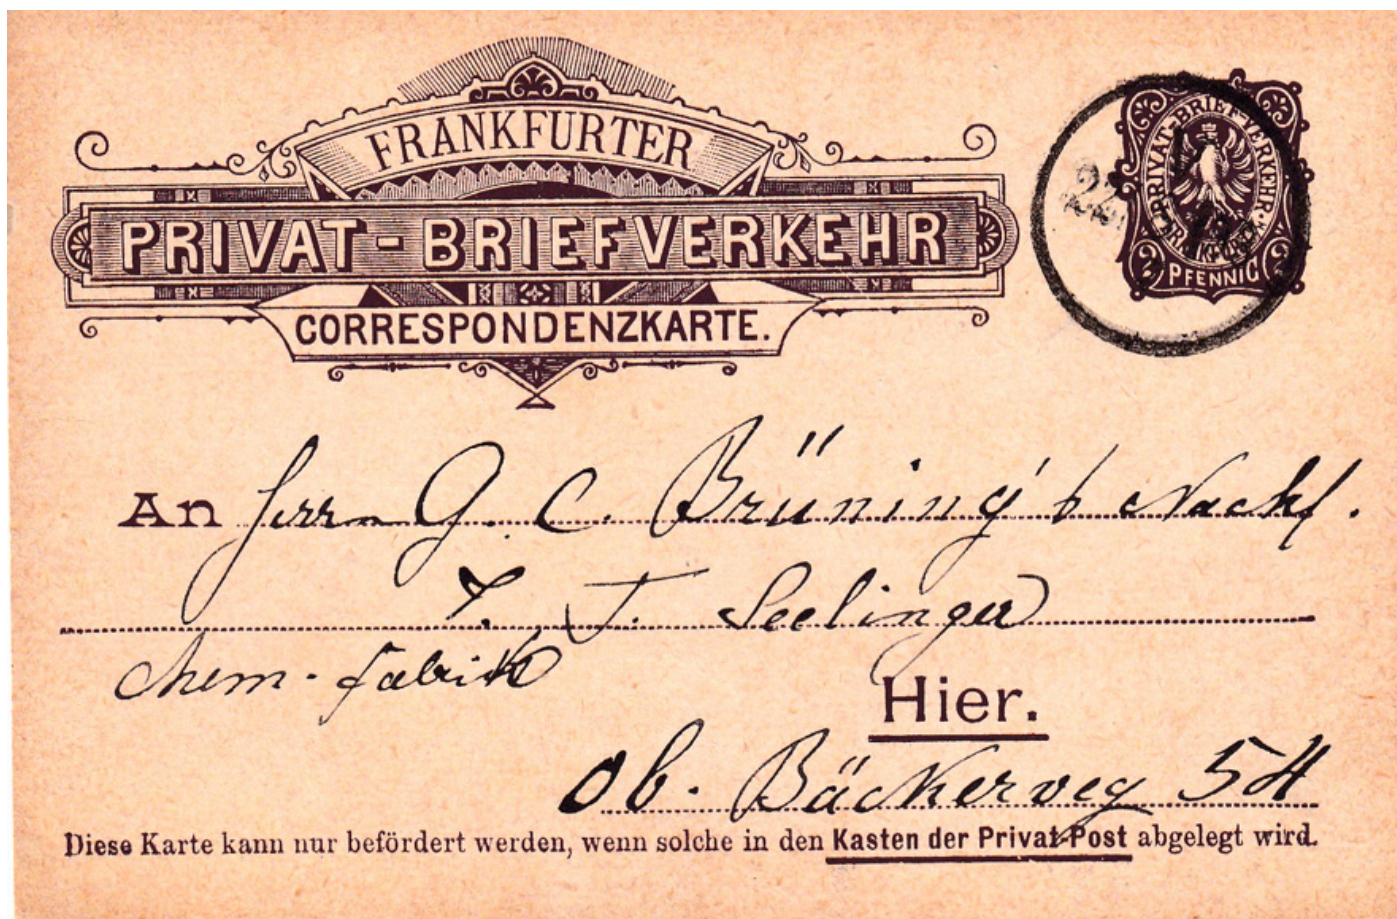 FRANKFURTER
PRIVAT-BRIEFVERKEHR
CORRESPONDENZKARTE.
PRIVAT-BRIEF-VERKEHR
FRANKFURT
2 PFENNIG 2
22
An Herrn G. C. Brüning's Nachf.
J. Seelinger
chem. Fabrik
Hier.
Ob. Bäckerweg 54
Diese Karte kann nur befördert werden, wenn solche in den Kasten der Privat-Post abgelegt wird.